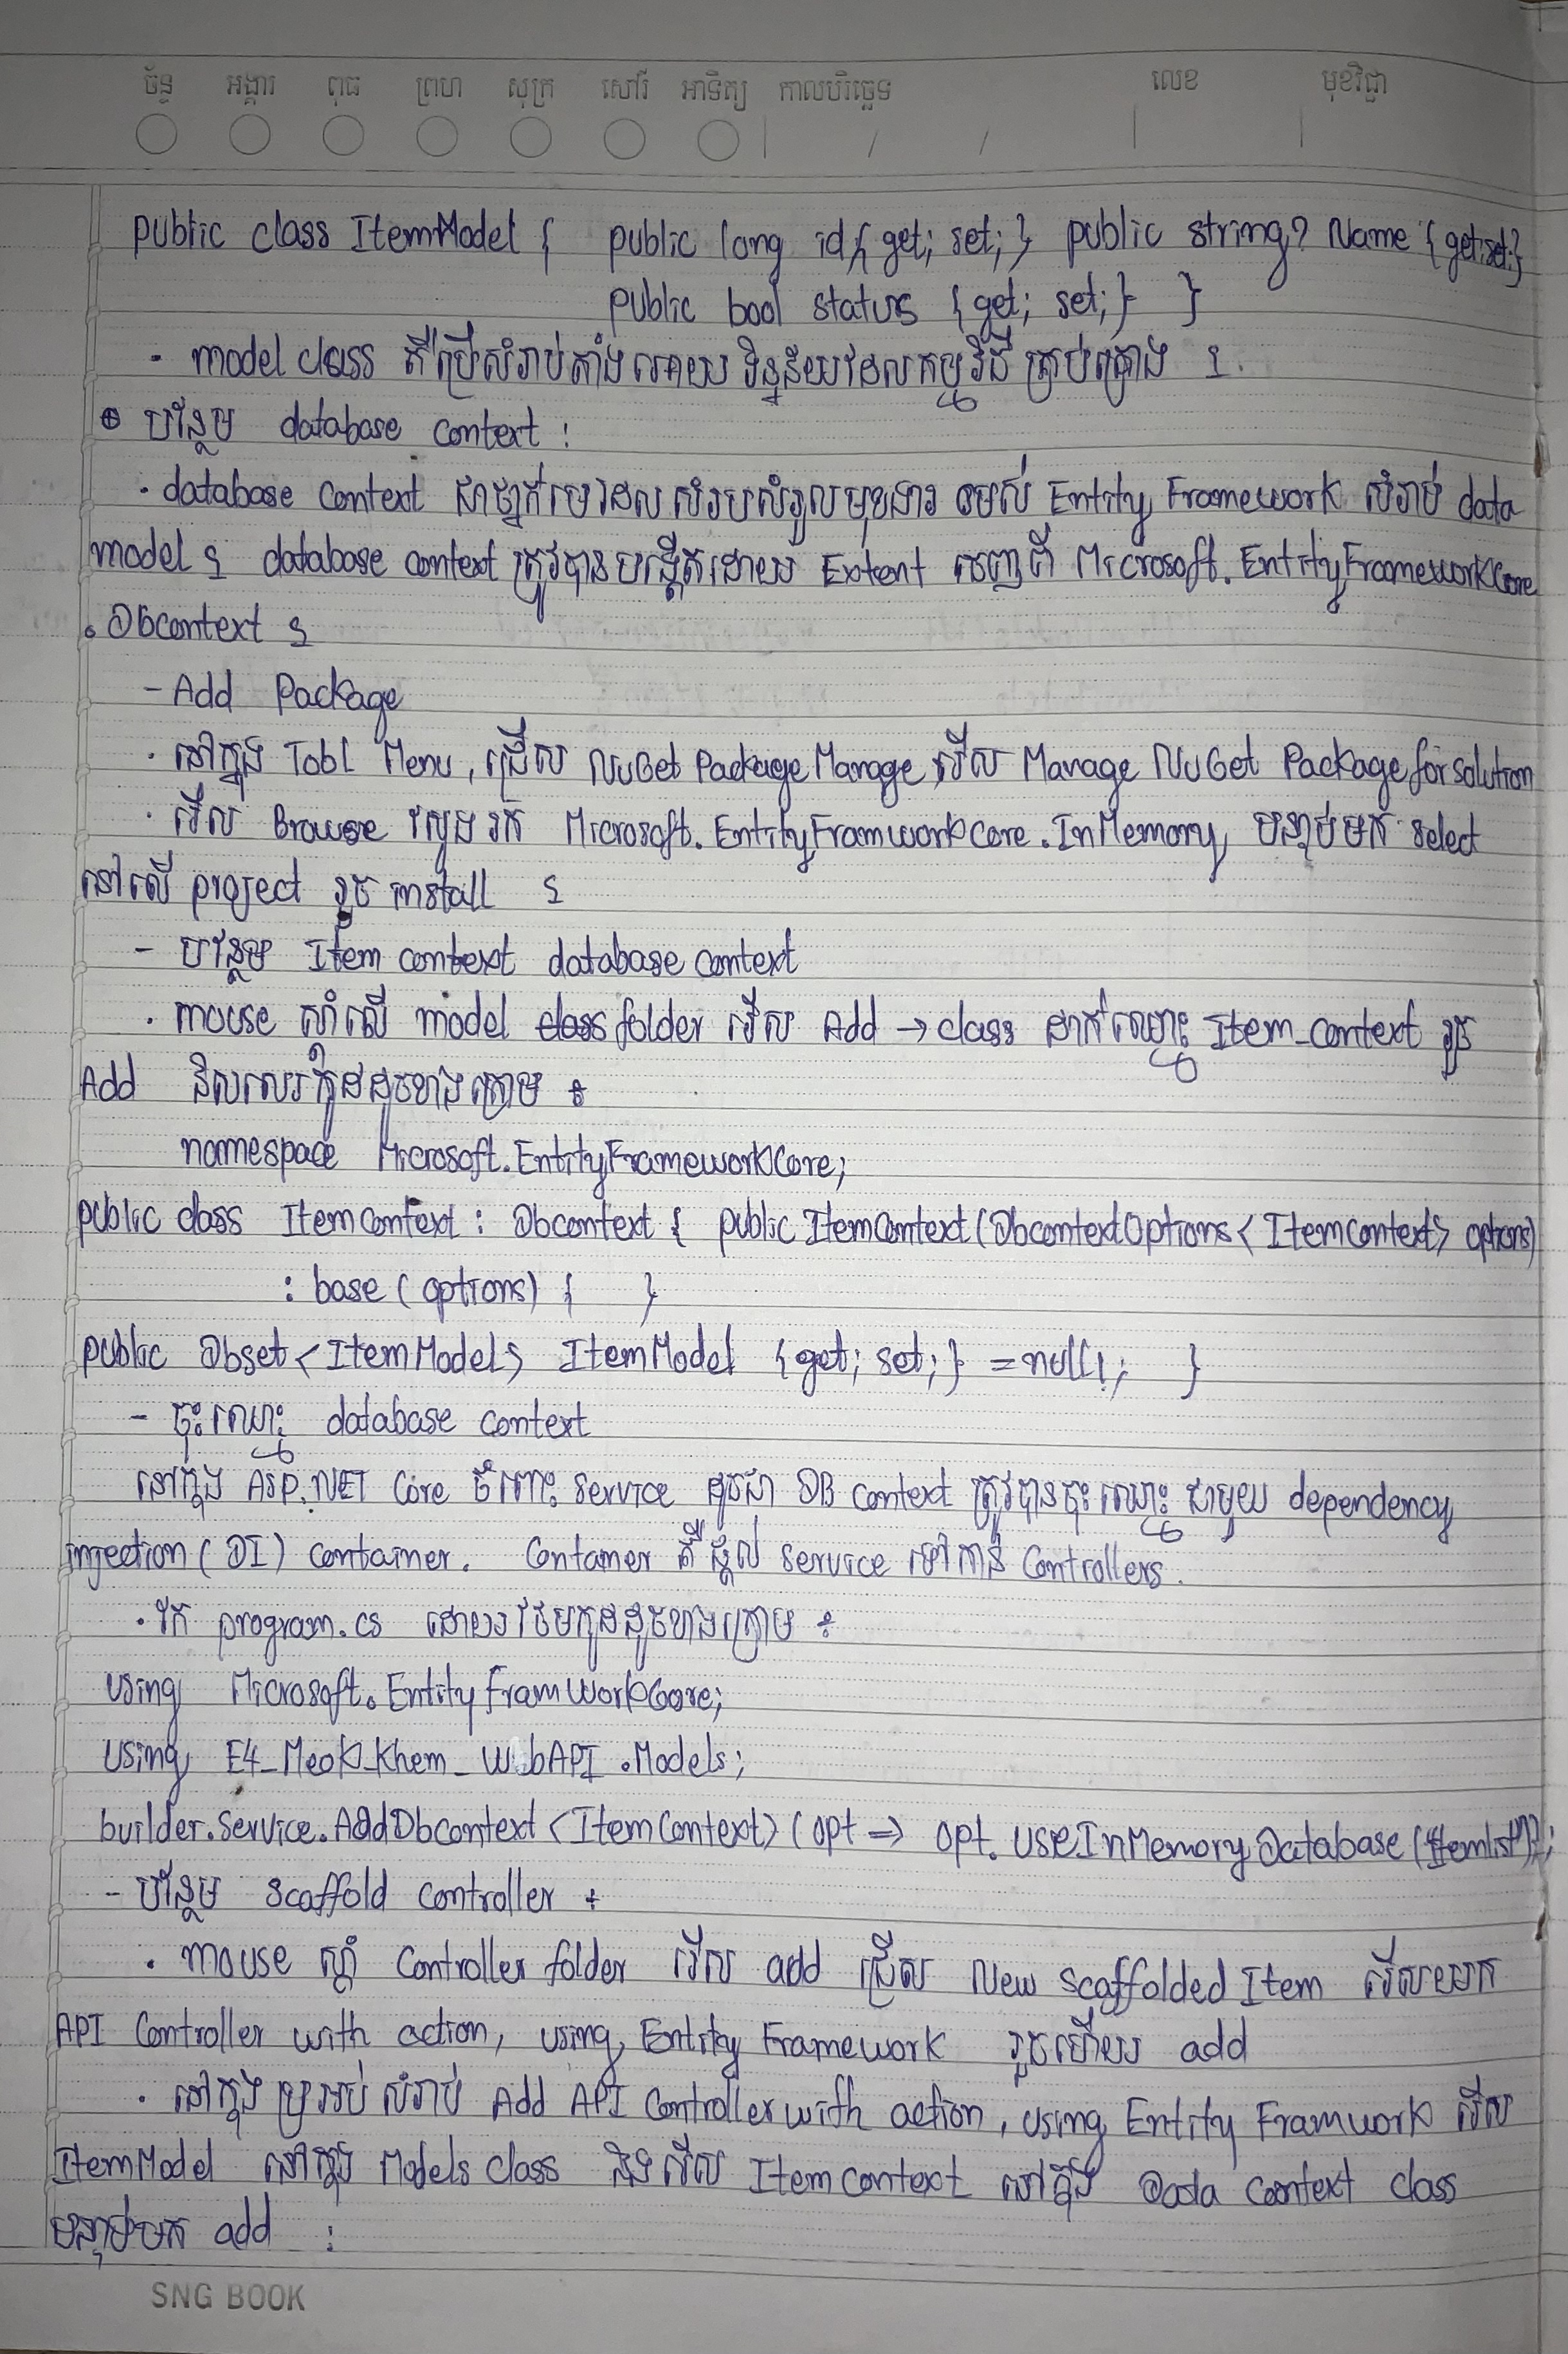 ច័ន្ទ អង្គារ ពុធ ព្រហ សុក្រ សៅរ៍ អាទិត្យ កាលបរិច្ឆេទ / / លេខ មុខវិជ្ជា
public class ItemModel { public long id { get; set; } public string? Name { get; set; }
public bool status { get; set; } }
· model class គឺប្រើសំរាប់តាំងអោយ ទិន្នន័យដែលកម្មវិធី គ្រប់គ្រង ។
⊕ បន្ថែម database context :
· database context ជាថ្នាក់មេដែល សំរបសំរួលមុខងារ របស់ Entity Framework សំរាប់ data
model ។ database context ត្រូវបានបង្កើតដោយ Extent ចេញពី Microsoft.EntityFrameworkCore
. Dbcontext ។
- Add Package
· នៅក្នុង Tool Menu, ជ្រើស NuGet Package Manage, រើស Manage NuGet Package for solution
· រើស Browse ស្វែងរក Microsoft.EntityFramworkCore.InMemory, បន្ទាប់មក select
នៅលើ project រួច install ។
- បន្ថែម Item context database context
· mouse ស្តាំលើ model class folder រើស Add → class ដាក់ឈ្មោះ Item_context រួច
Add និងសរសេរកូដដូចខាងក្រោម ÷
namespace Microsoft.EntityFrameworkCore;
public class ItemContext : Dbcontext { public ItemContext(DbcontextOptions<ItemContext> options)
: base (options) { }
public Dbset<ItemModel> ItemModel {get; set;} = null!; }
- ចុះឈ្មោះ database context
នៅក្នុង ASP.NET Core ចំពោះ service ដូចជា DB context ត្រូវបានចុះឈ្មោះ ជាមួយ dependency
injection (DI) container. Container គឺផ្តល់ service ទៅកាន់ Controllers.
· រក program.cs ដោយថែមកូដដូចខាងក្រោម ÷
using Microsoft.EntityFramWorkCore;
using E4_MeoK_Khem_WebAPI.Models;
builder.Service.AddDbcontext<ItemContext>(opt => opt.UseInMemoryDatabase("Itemlist"));
- បន្ថែម Scaffold controller ÷
· mouse ស្តាំ Controller folder រើស add ជ្រើស New Scaffolded Item រើសយក
API Controller with action, using Entity Framework រួចហើយ add
· នៅក្នុងប្រអប់ សំរាប់ Add API Controller with action, using Entity Framwork រើស
ItemModel នៅក្នុង Models class និងរើស ItemContext នៅក្នុង Data Context class
បន្ទាប់មក add :
SNG BOOK